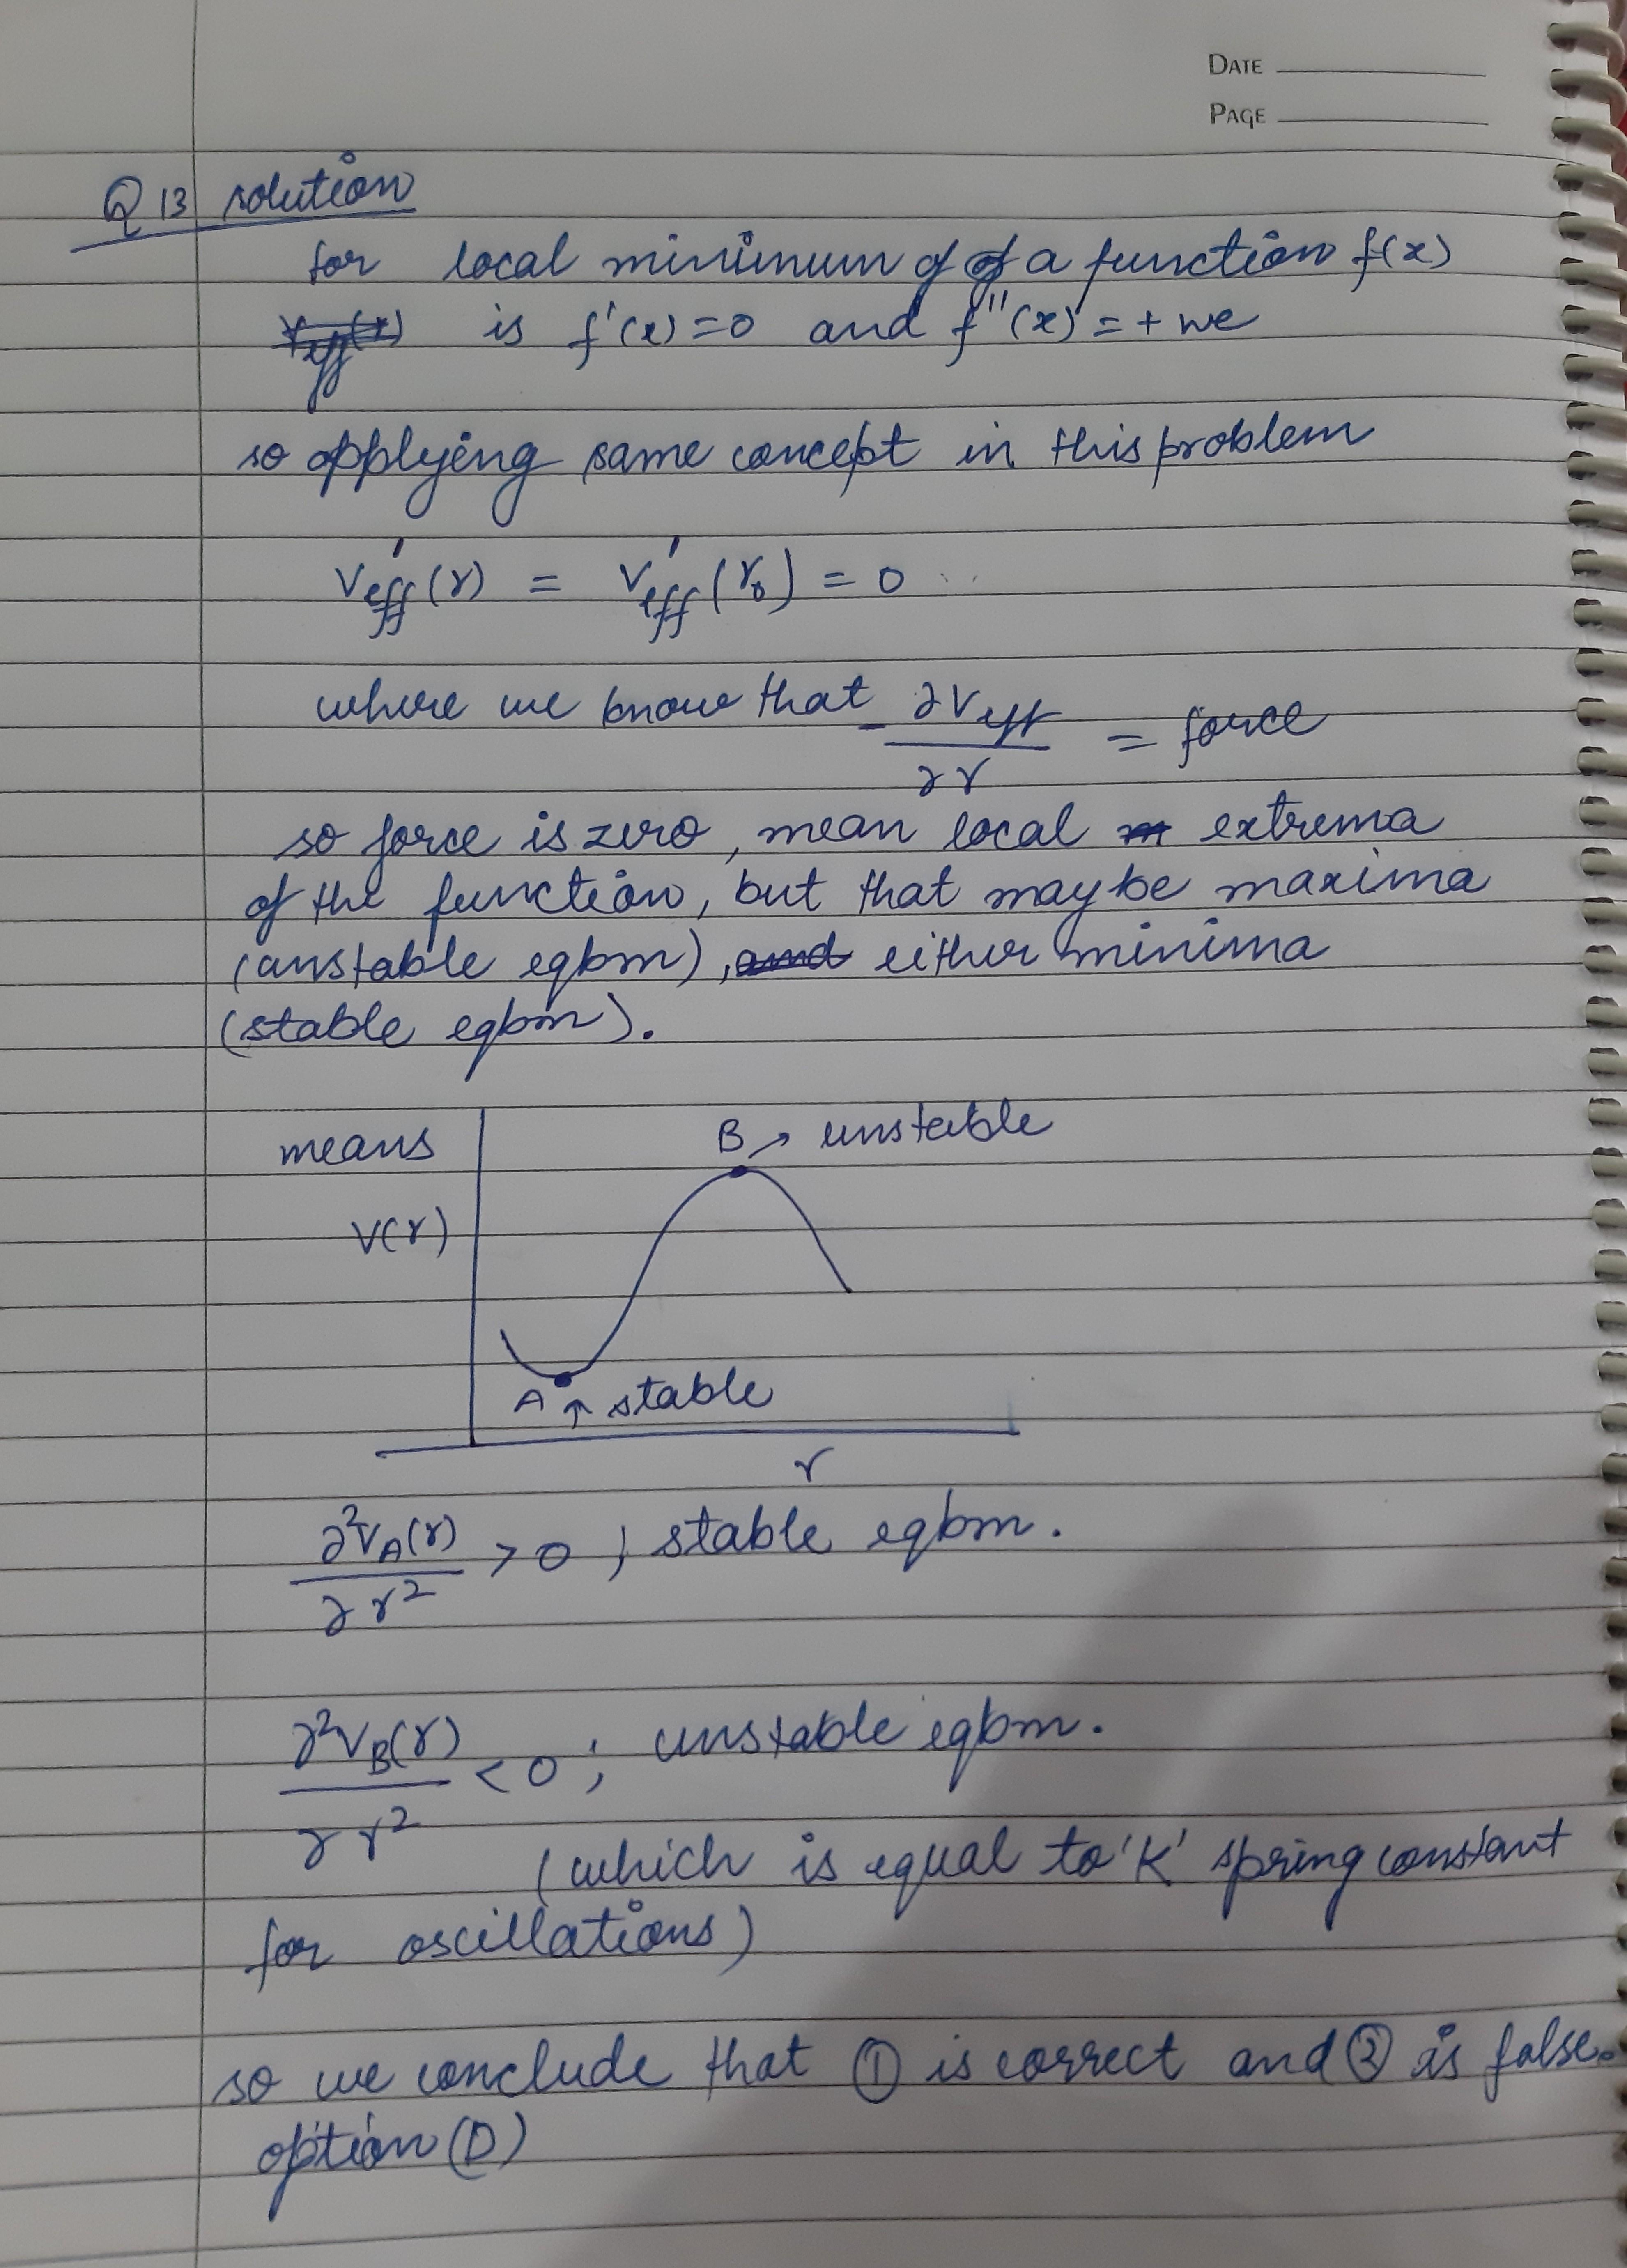 DATE
PAGE
Q 13 solution
for local minimum of of a function f(x)
is f'(x) = 0 and f''(x) = + we
so applying same concept in this problem
V'eff (r) = V'eff (r₀) = 0
where we know that - ∂Veff / ∂r = force
so force is zero, mean local extrema
of the function, but that may be maxima
(unstable eqbm), either minima
(stable eqbm).
means
B → unstable
V(r)
A ↑ stable
r
∂²V_A(r) / ∂r² > 0 ; stable eqbm.
∂²V_B(r) / ∂r² < 0 ; unstable eqbm.
(which is equal to 'K' spring constant
for oscillations)
so we conclude that ① is correct and ② is false.
option (D)